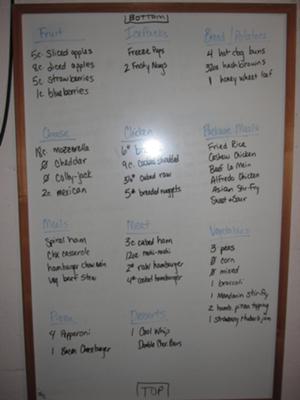 Bottom
Fruit
5c Sliced apples
8c diced apples
5c strawberries
1c blueberries
Ice Packs
Freeze Pops
2 Frosty Mugs
Bread / Potatoes
4 hot dog buns
32oz hashbrowns
1 honey wheat loaf
Cheese
18c Mozzarella
0 Cheddar
0 Colby-jack
2c mexican
Chicken
6#
9c. cooked shredded
3½# cubed raw
5# breaded nuggets
Package Meals
Fried Rice
Cashew Chicken
Beef Lo Mein
Alfredo Chicken
Asian Stir-Fry
Sweet + Sour
Meals
Spiral ham
Chx casserole
hamburger chow mein
veg beef stew
Meat
3c cubed ham
12oz mahi-mahi
2# raw hamburger
4# cooked hamburger
Vegetables
3 peas
0 corn
0 mixed
1 broccoli
1 Mandarin Stir-fry
2 homem. pizza topping
1 strawberry rhubarb jam
Pizza
4 Pepperoni
1 Bacon Cheeseburger
Desserts
1 Cool Whip
Double Choc Bars
TOP